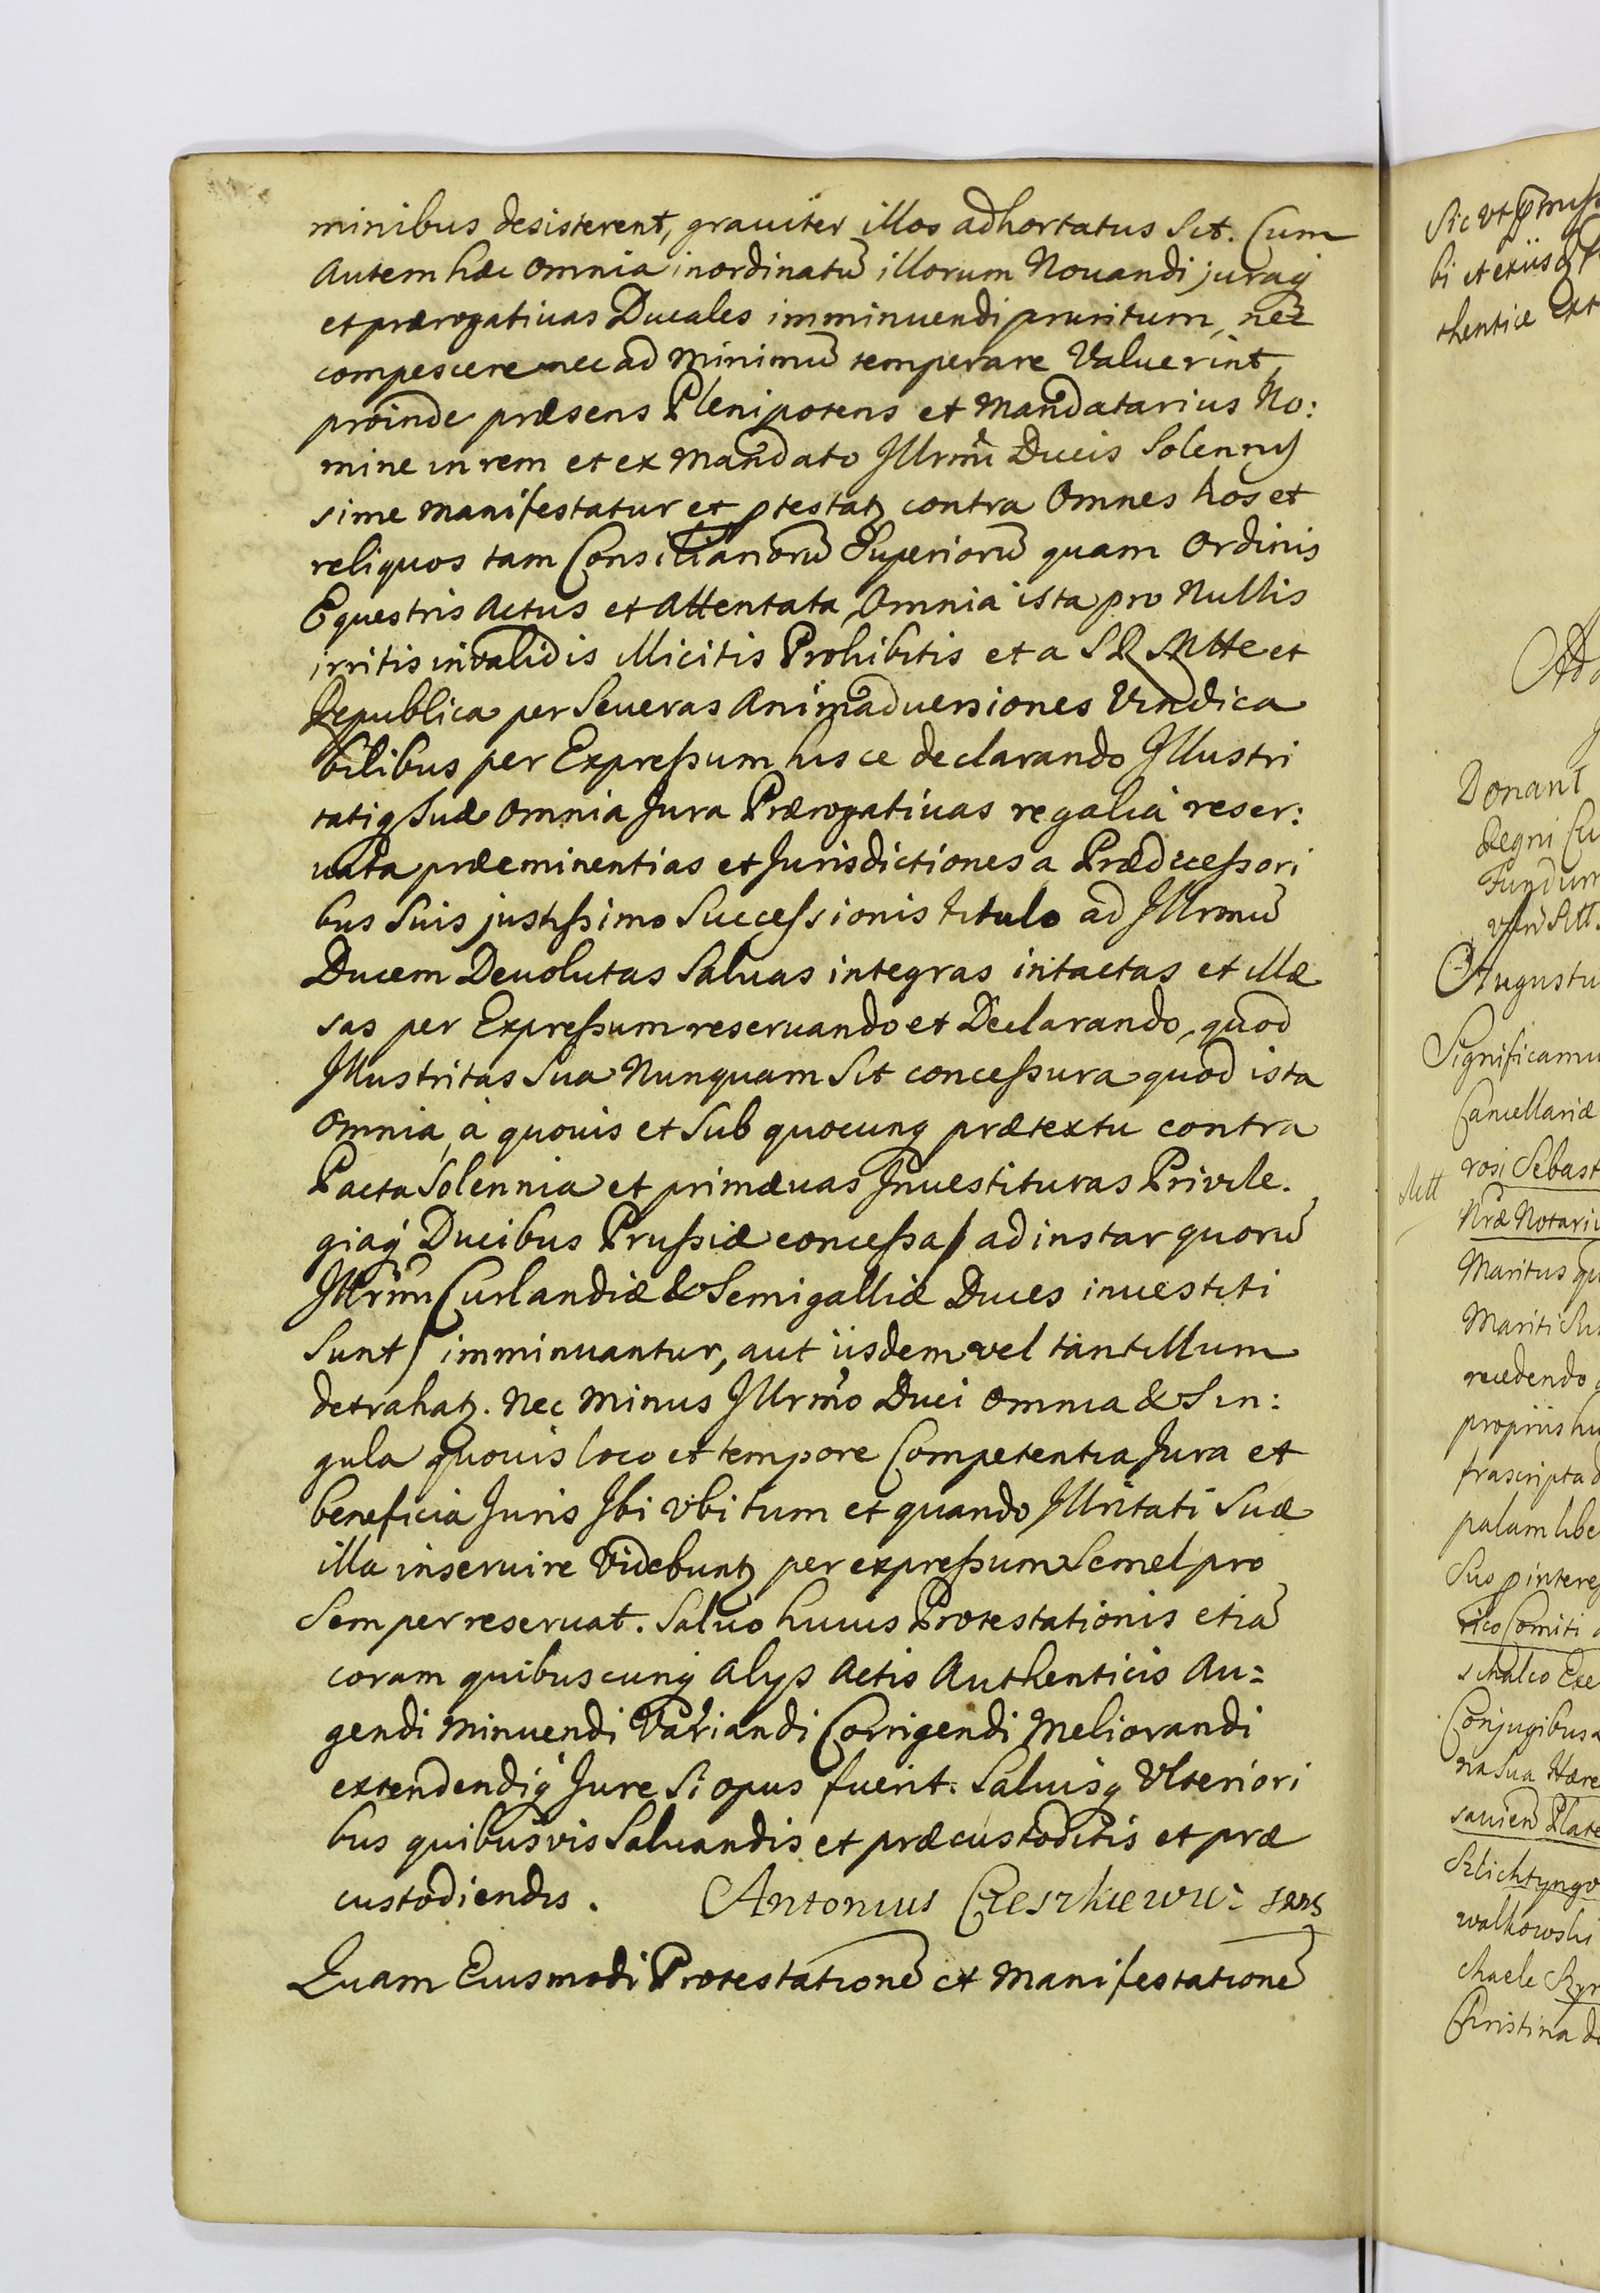 minibus desisterent, grauiter illos adhortatus sit. Cum
Autem hæc omnia inordinatū illorum Nouandi juraq
et prærogatiuas Ducales imminuendi pruritum, nec
compescere nec ad minimū temperare Valuerint,
proinde præsens Plenipotens et Mandatarius No:
mine in rem et ex Mandato Illrmi Ducis Solennis
sime manifestatur et ptestatz contra Omnes hos et
reliquos tam Consiliariorū Superiorū quam Ordinis
Equestris Actus et Attentata, Omnia ista pro Nullis
irritis invalidis illicitis Prohibitis et a S R Mtte et
Republica per Seueras Animaduersiones Vindica
bilibus per Expreſsum hisce declarando Illustri
tatiq Suæ omnia Jura Prærogatiuas regalia reser:
uata præeminentias et Jurisdictiones a Prædeceſsori
bus Suis justiſsimo Succeſsionis titulo ad Illrmū
Ducem Deuolutas Saluas integras intactas et illæ
sas per Expreſsum reseruando et Declarando, quod
Illustritas Sua Nunquam Sit conceſsura quod ista
Omnia, à quouis et Sub quocunq prætextu contra
Pacta Solennia et primæuas Inuestituras Privile.
giaq Ducibus Pruſsiæ conceſsa / ad instar quorū
Illrmi Curlandiæ & Semigalliæ Duces inuestiti
Sunt / imminuantur, aut iisdem vel tantillum
detrahatz. Nec Minus Illrmo Duci omnia & Sin:
gula quouis loco et tempore Competentia Jura et
beneficia Juris Ibi Vbi tum et quando Illritati Suæ
illa inseruire Videbuntz per expreſsum Semel pro
Semper reseruat. Saluo huius Protestationis etiā
coram quibuscunq Alys Actis Authenticis Au=
gendi Minuendi Variandi Corrigendi Meliorandi
extendendiq Jure Si opus fuerit. Saluisq Vlteriori
bus quibusvis Saluandis et præcustoditis et præ
custodiendis. Antonius
Quam Eiusmodi Protestationē et Manifestationē
Donant
Augustu
Significamu
Cancellariæ
rosi Sebast
Nræ Notariu
Maritus
Mariti
recedendo
propriis hu
frascripta
palam libe
rico Comiti
Conjugibus
walkowski
Christina